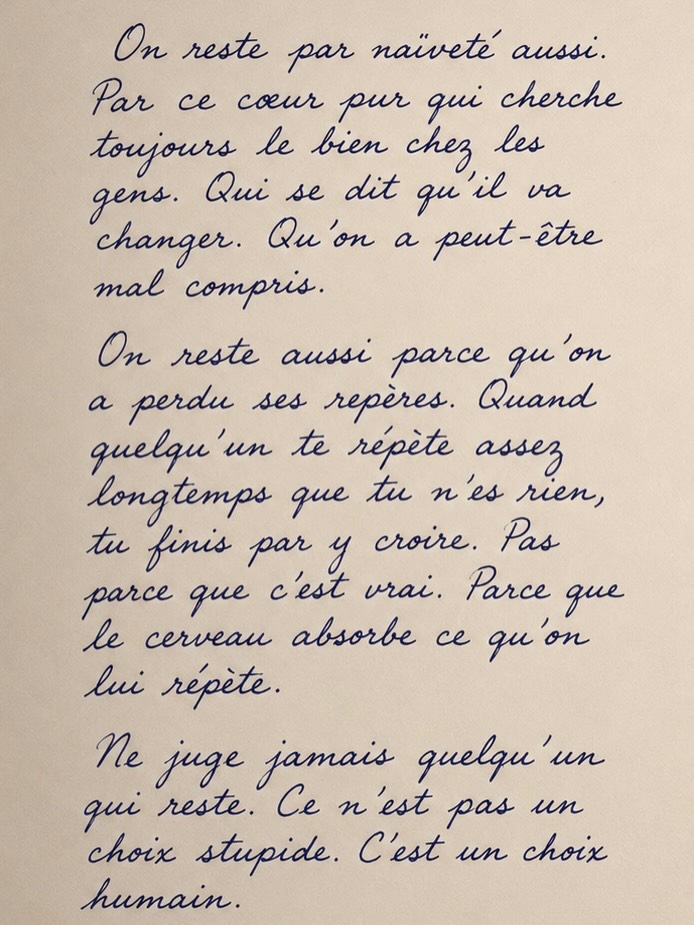 On reste par naïveté aussi.
Par ce cœur pur qui cherche
toujours le bien chez les
gens. Qui se dit qu'il va
changer. Qu'on a peut-être
mal compris.
On reste aussi parce qu'on
a perdu ses repères. Quand
quelqu'un te répète assez
longtemps que tu n'es rien,
tu finis par y croire. Pas
parce que c'est vrai. Parce que
le cerveau absorbe ce qu'on
lui répète.
Ne juge jamais quelqu'un
qui reste. Ce n'est pas un
choix stupide. C'est un choix
humain.